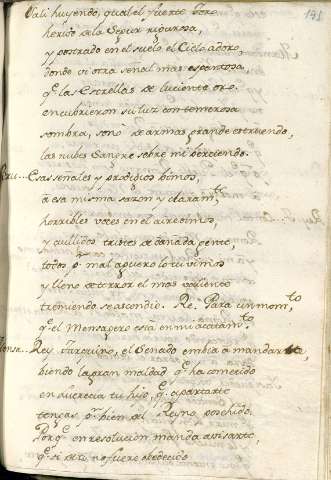 141
Salí huyendo, qual el fuerte toro
herido de la segur rigurosa,
y postrado en el suelo el Cielo adoro,
donde vi otra señal mas espantosa,
q.e las Estrellas de luciente oro
encubrieron su luz con temerosa
sombra, sonó de armas grande estruendo,
las nubes Sangre sobre mi vertiendo.
Esas señales y prodigios vimos,
a esa misma sazon y claram.te
horribles voces en el aire oimos,
y aullidos tristes de dañada gente,
todos p.r mal aguero lo tuvimos
y lleno de terror el mas valiente
tremiendo se ascondió. Re. Para un mom.to
q.e el Mensagero está en mi acatam.to
Rey Tarquino, el Senado embia a mandarte
biendo la gran maldad q.e ha cometido
en Lucrecia tu hijo, q.e apartarte
tengas p.r bien del Reyno posehido.
Porq.e en resolucion manda avisarte,
q.e si de tu no fuere obedecido